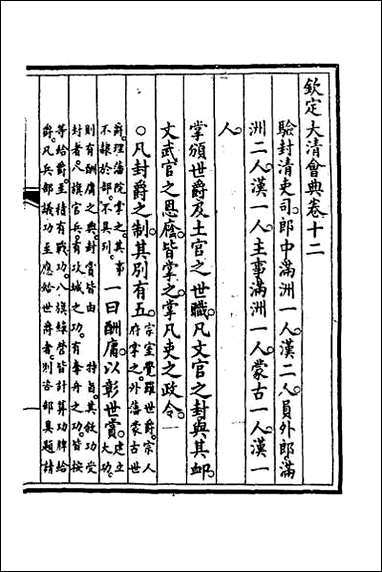 欽定大清會典卷十二
驗封清吏司郎中滿洲一人漢二人員外郎滿
洲二人漢一人主事滿洲一人蒙古一人漢一
人
掌頒世爵及土官之世職凡文官之封與其卹
文武官之恩廕皆掌之掌凡吏之政令
○凡封爵之制其別有五宗室覺羅世爵宗人
府掌之外藩蒙古世
爵理藩院掌之其事
不隷於部不具列一曰酬庸以彰世賞建立
大功
則有酬庸之典封賞皆由 特旨其敘功受
封者凡旗官兵有攻城之功有奪舟之功皆按
等給爵至積有戰功八旗綠營皆計算功牌給
爵凡兵部議功至應給世爵者別咨部具題請